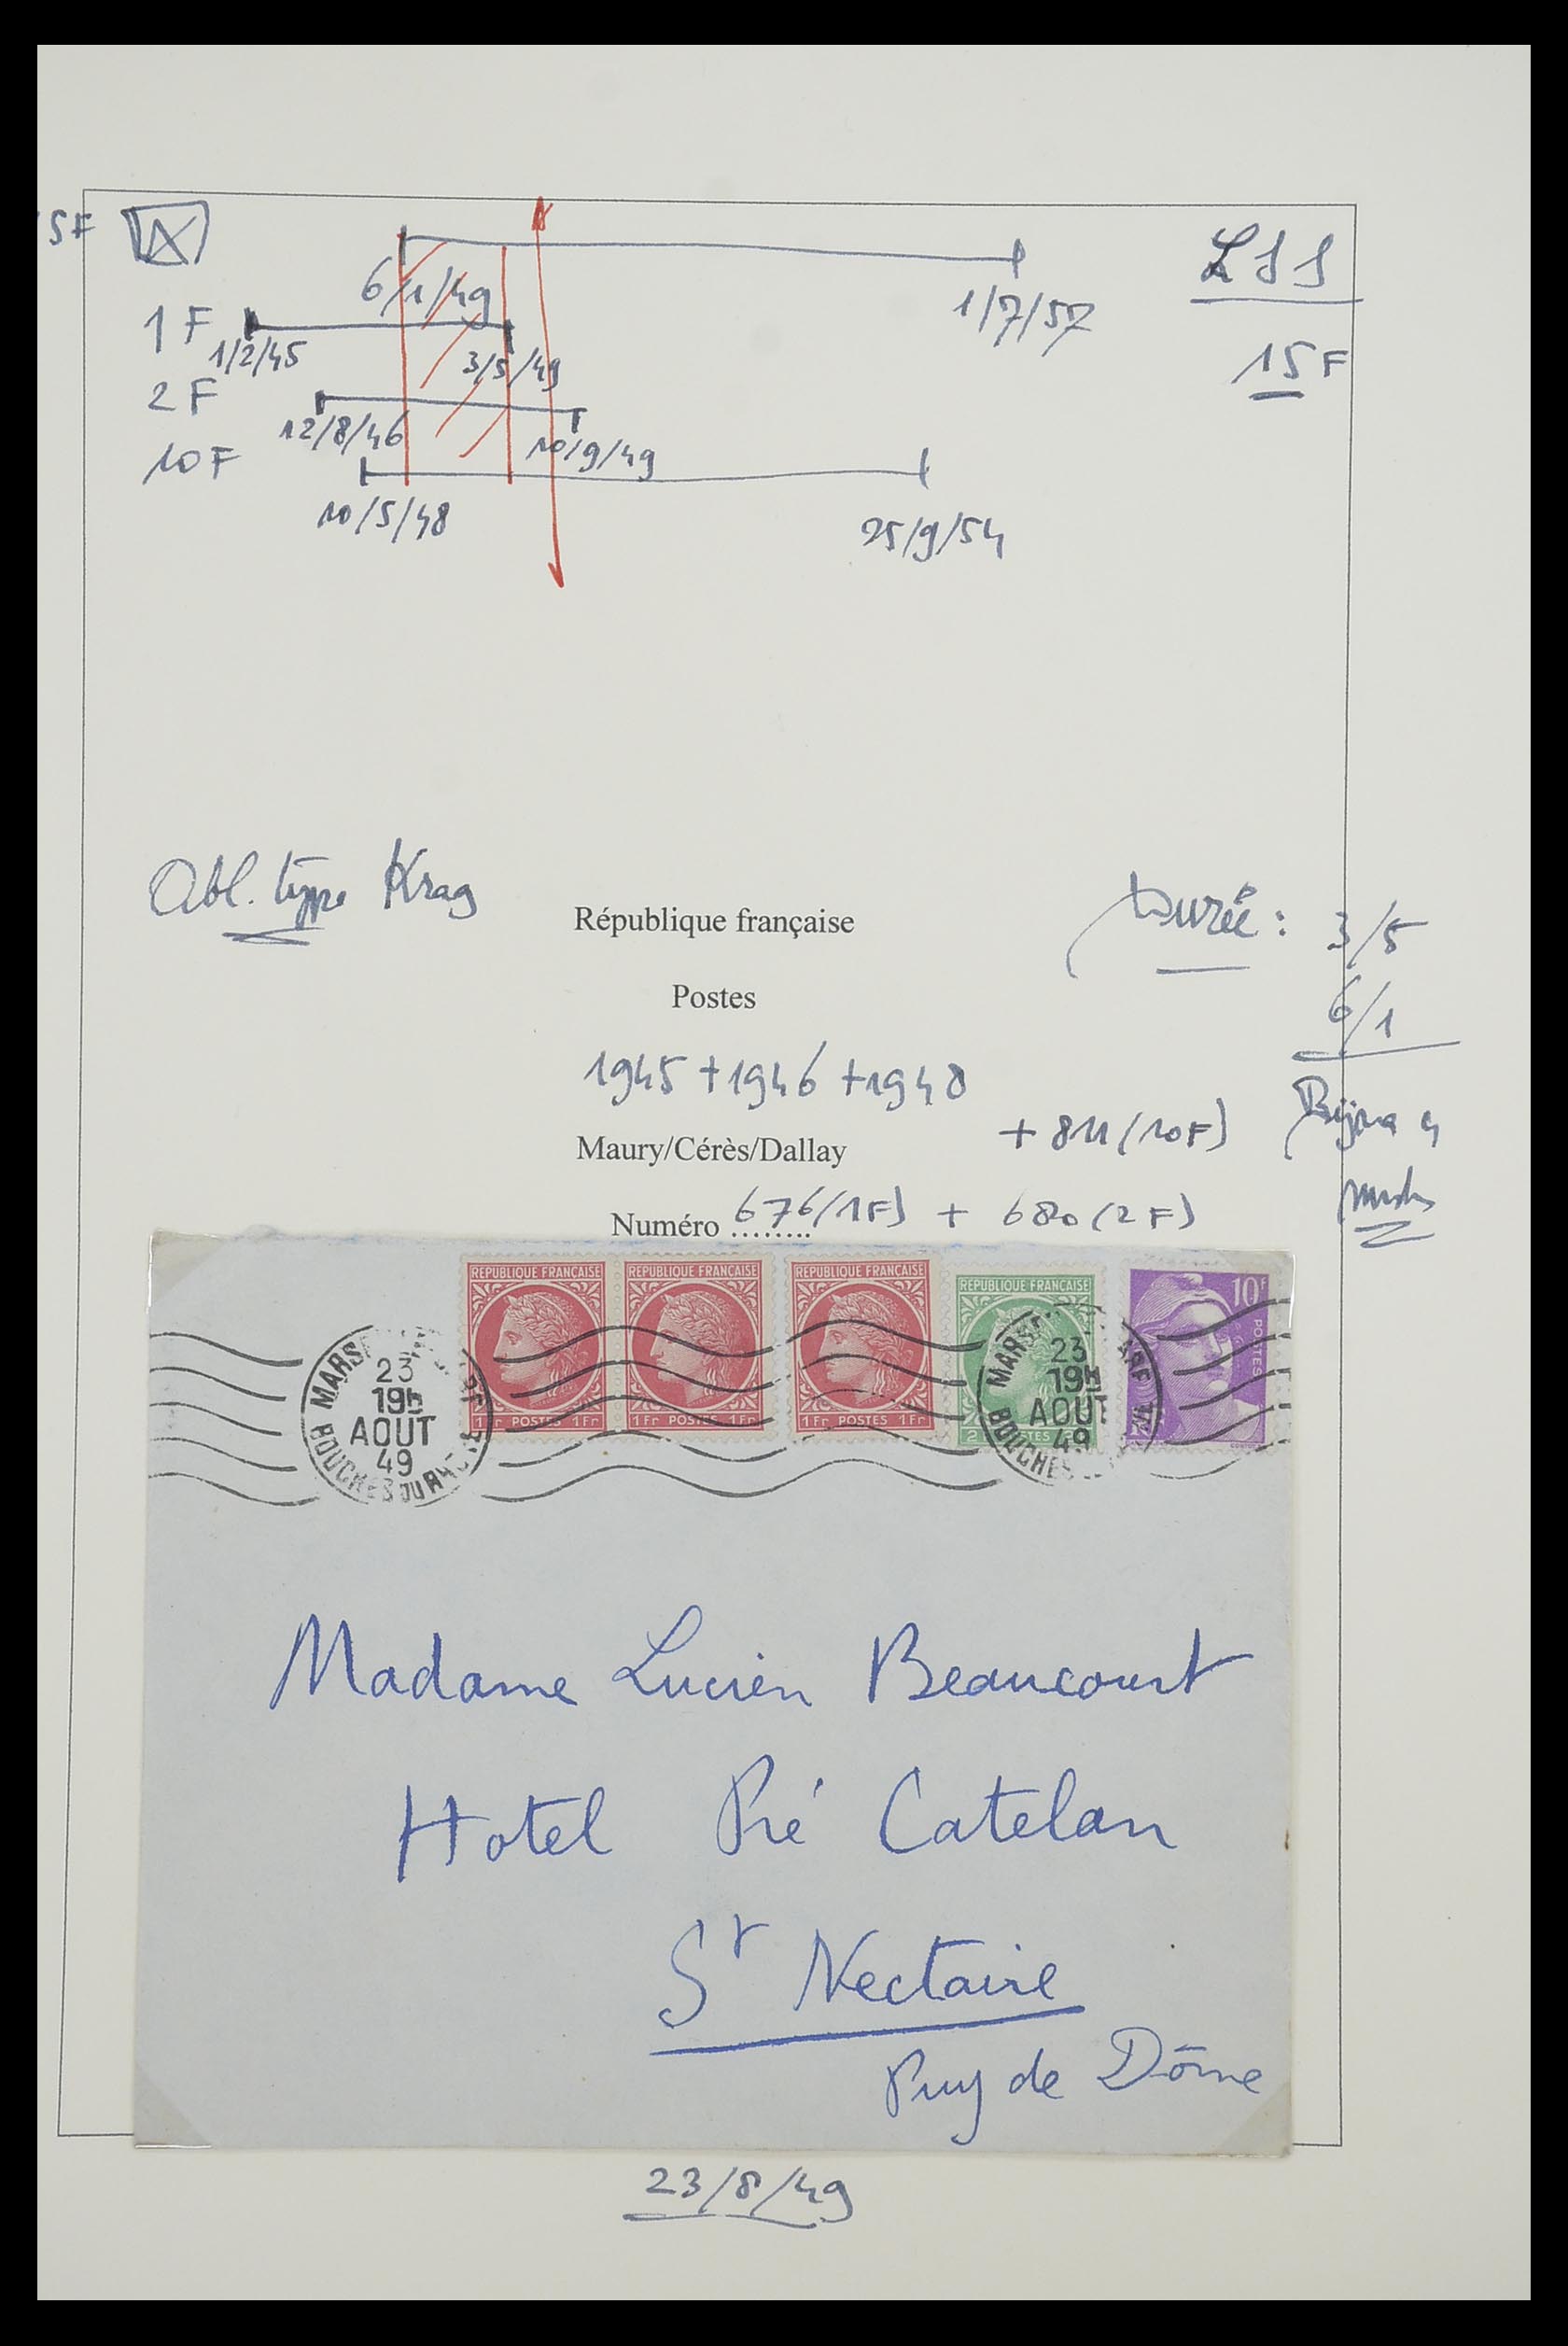 15F
LSS
6/1/49
1/7/57
15F
1F
1/2/45
3/5/49
2F
12/8/46
10/9/49
10F
10/5/48
25/9/54
Obl. type Krag
République française
Durée :
3/5
6/1
Postes
1945 + 1946 + 1948
+ 811 (10F)
Maury/Cérès/Dallay
Numéro ........ 676 (1F) + 680 (2F)
REPUBLIQUE FRANÇAISE
1 POSTES 1Fr
REPUBLIQUE FRANÇAISE
1Fr POSTES 1Fr
REPUBLIQUE FRANÇAISE
1Fr POSTES 1Fr
REPUBLIQUE FRANÇAISE
2 POSTES
10F
POSTES
MARS GARE
23
19h
AOUT
49
BOUCHES DU RHONE
MARS GARE
23
19H
AOUT
49
BOUCHES
Madame Lucien Beaucourt
Hotel Pré Catelan
St Nectaire
Puy de Dôme
23/8/49